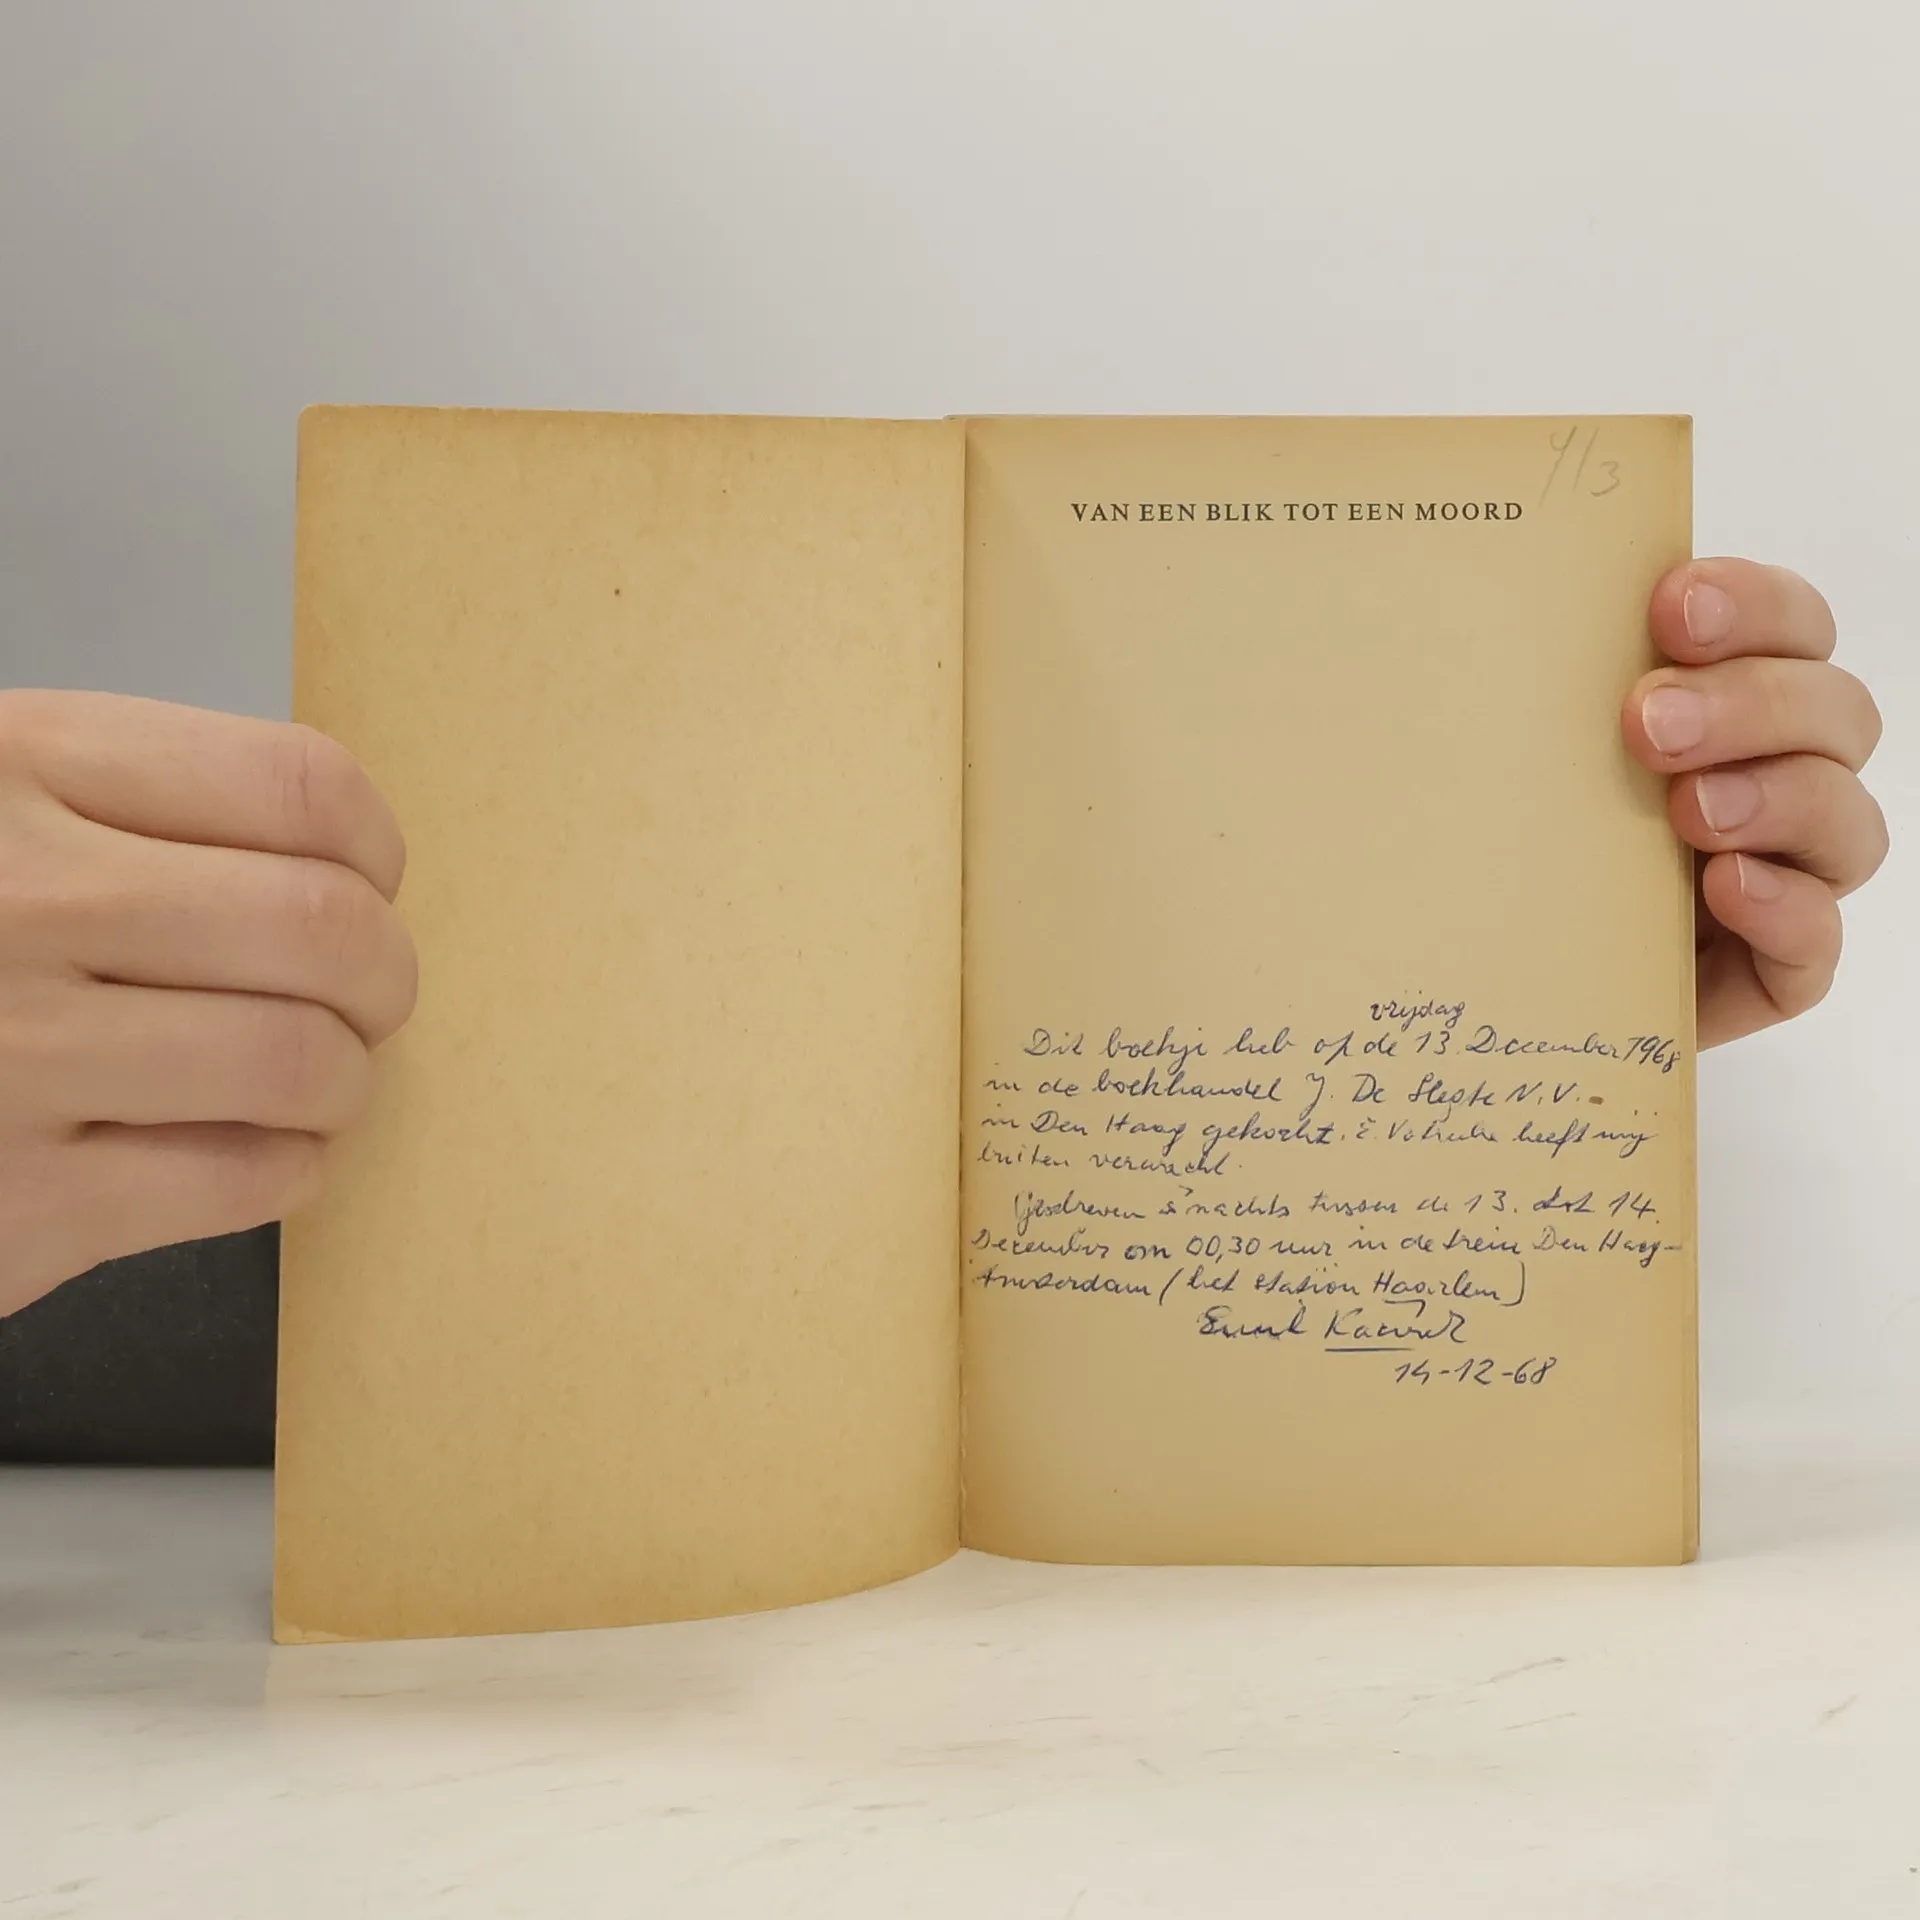 4/3
VAN EEN BLIK TOT EEN MOORD
vrijdag
Dit boekje heb op de 13 December 1968
in de boekhandel J. De Slegte N.V. -
in Den Haag gekocht. E. heeft mij
buiten verwacht.
Geschreven s'nachts tussen de 13. tot 14.
December om 00,30 uur in de trein Den Haag-
Amsterdam (het station Haarlem)
Emil
14-12-68